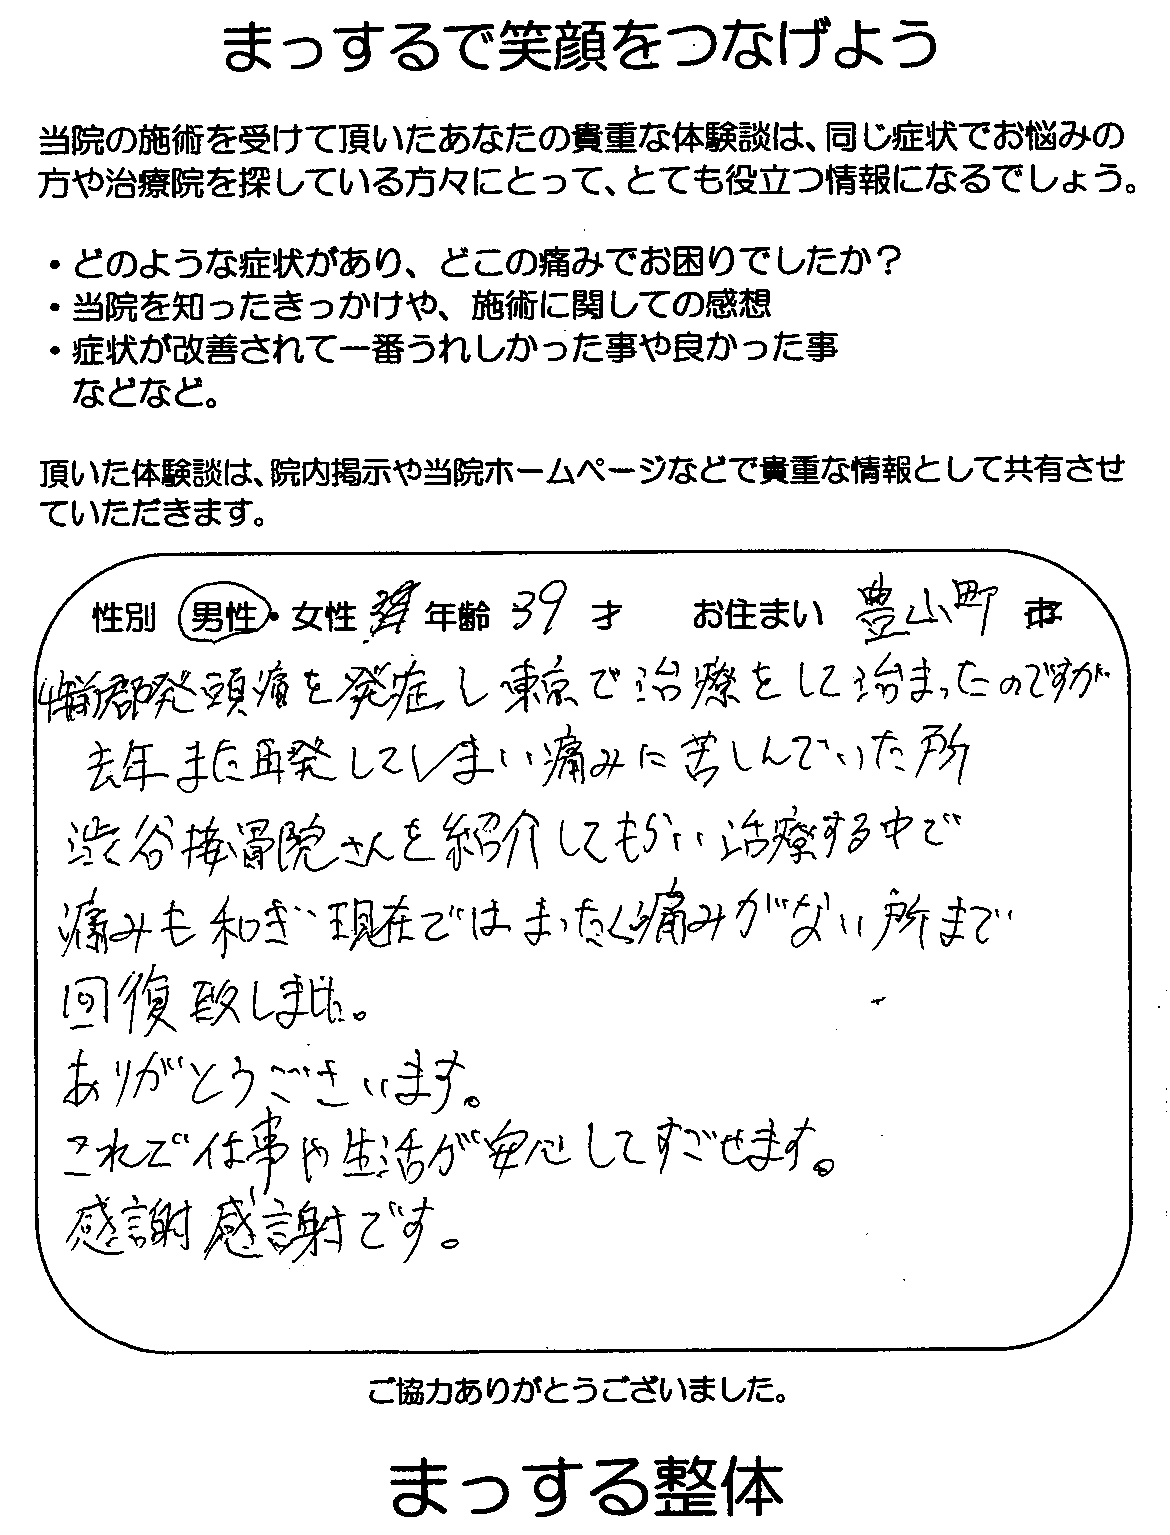 まっするで笑顔をつなげよう
当院の施術を受けて頂いたあなたの貴重な体験談は、同じ症状でお悩みの
方や治療院を探している方々にとって、とても役立つ情報になるでしょう。
・どのような症状があり、どこの痛みでお困りでしたか？
・当院を知ったきっかけや、施術に関しての感想
・症状が改善されて一番うれしかった事や良かった事
などなど。
頂いた体験談は、院内掲示や当院ホームページなどで貴重な情報として共有させ
ていただきます。
性別 男性・女性 年齢 39 才 お住まい 豊山町 市
群発頭痛を発症し東京で治療をして治まったのですが
去年また再発してしまい痛みに苦しんでいた所
渋谷接骨院さんを紹介してもらい治療する中で
痛みも和ぎ現在ではまったく痛みがない所まで
回復致しました。
ありがとうございます。
これで仕事や生活が安心してすごせます。
感謝感謝です。
ご協力ありがとうございました。
まっする整体